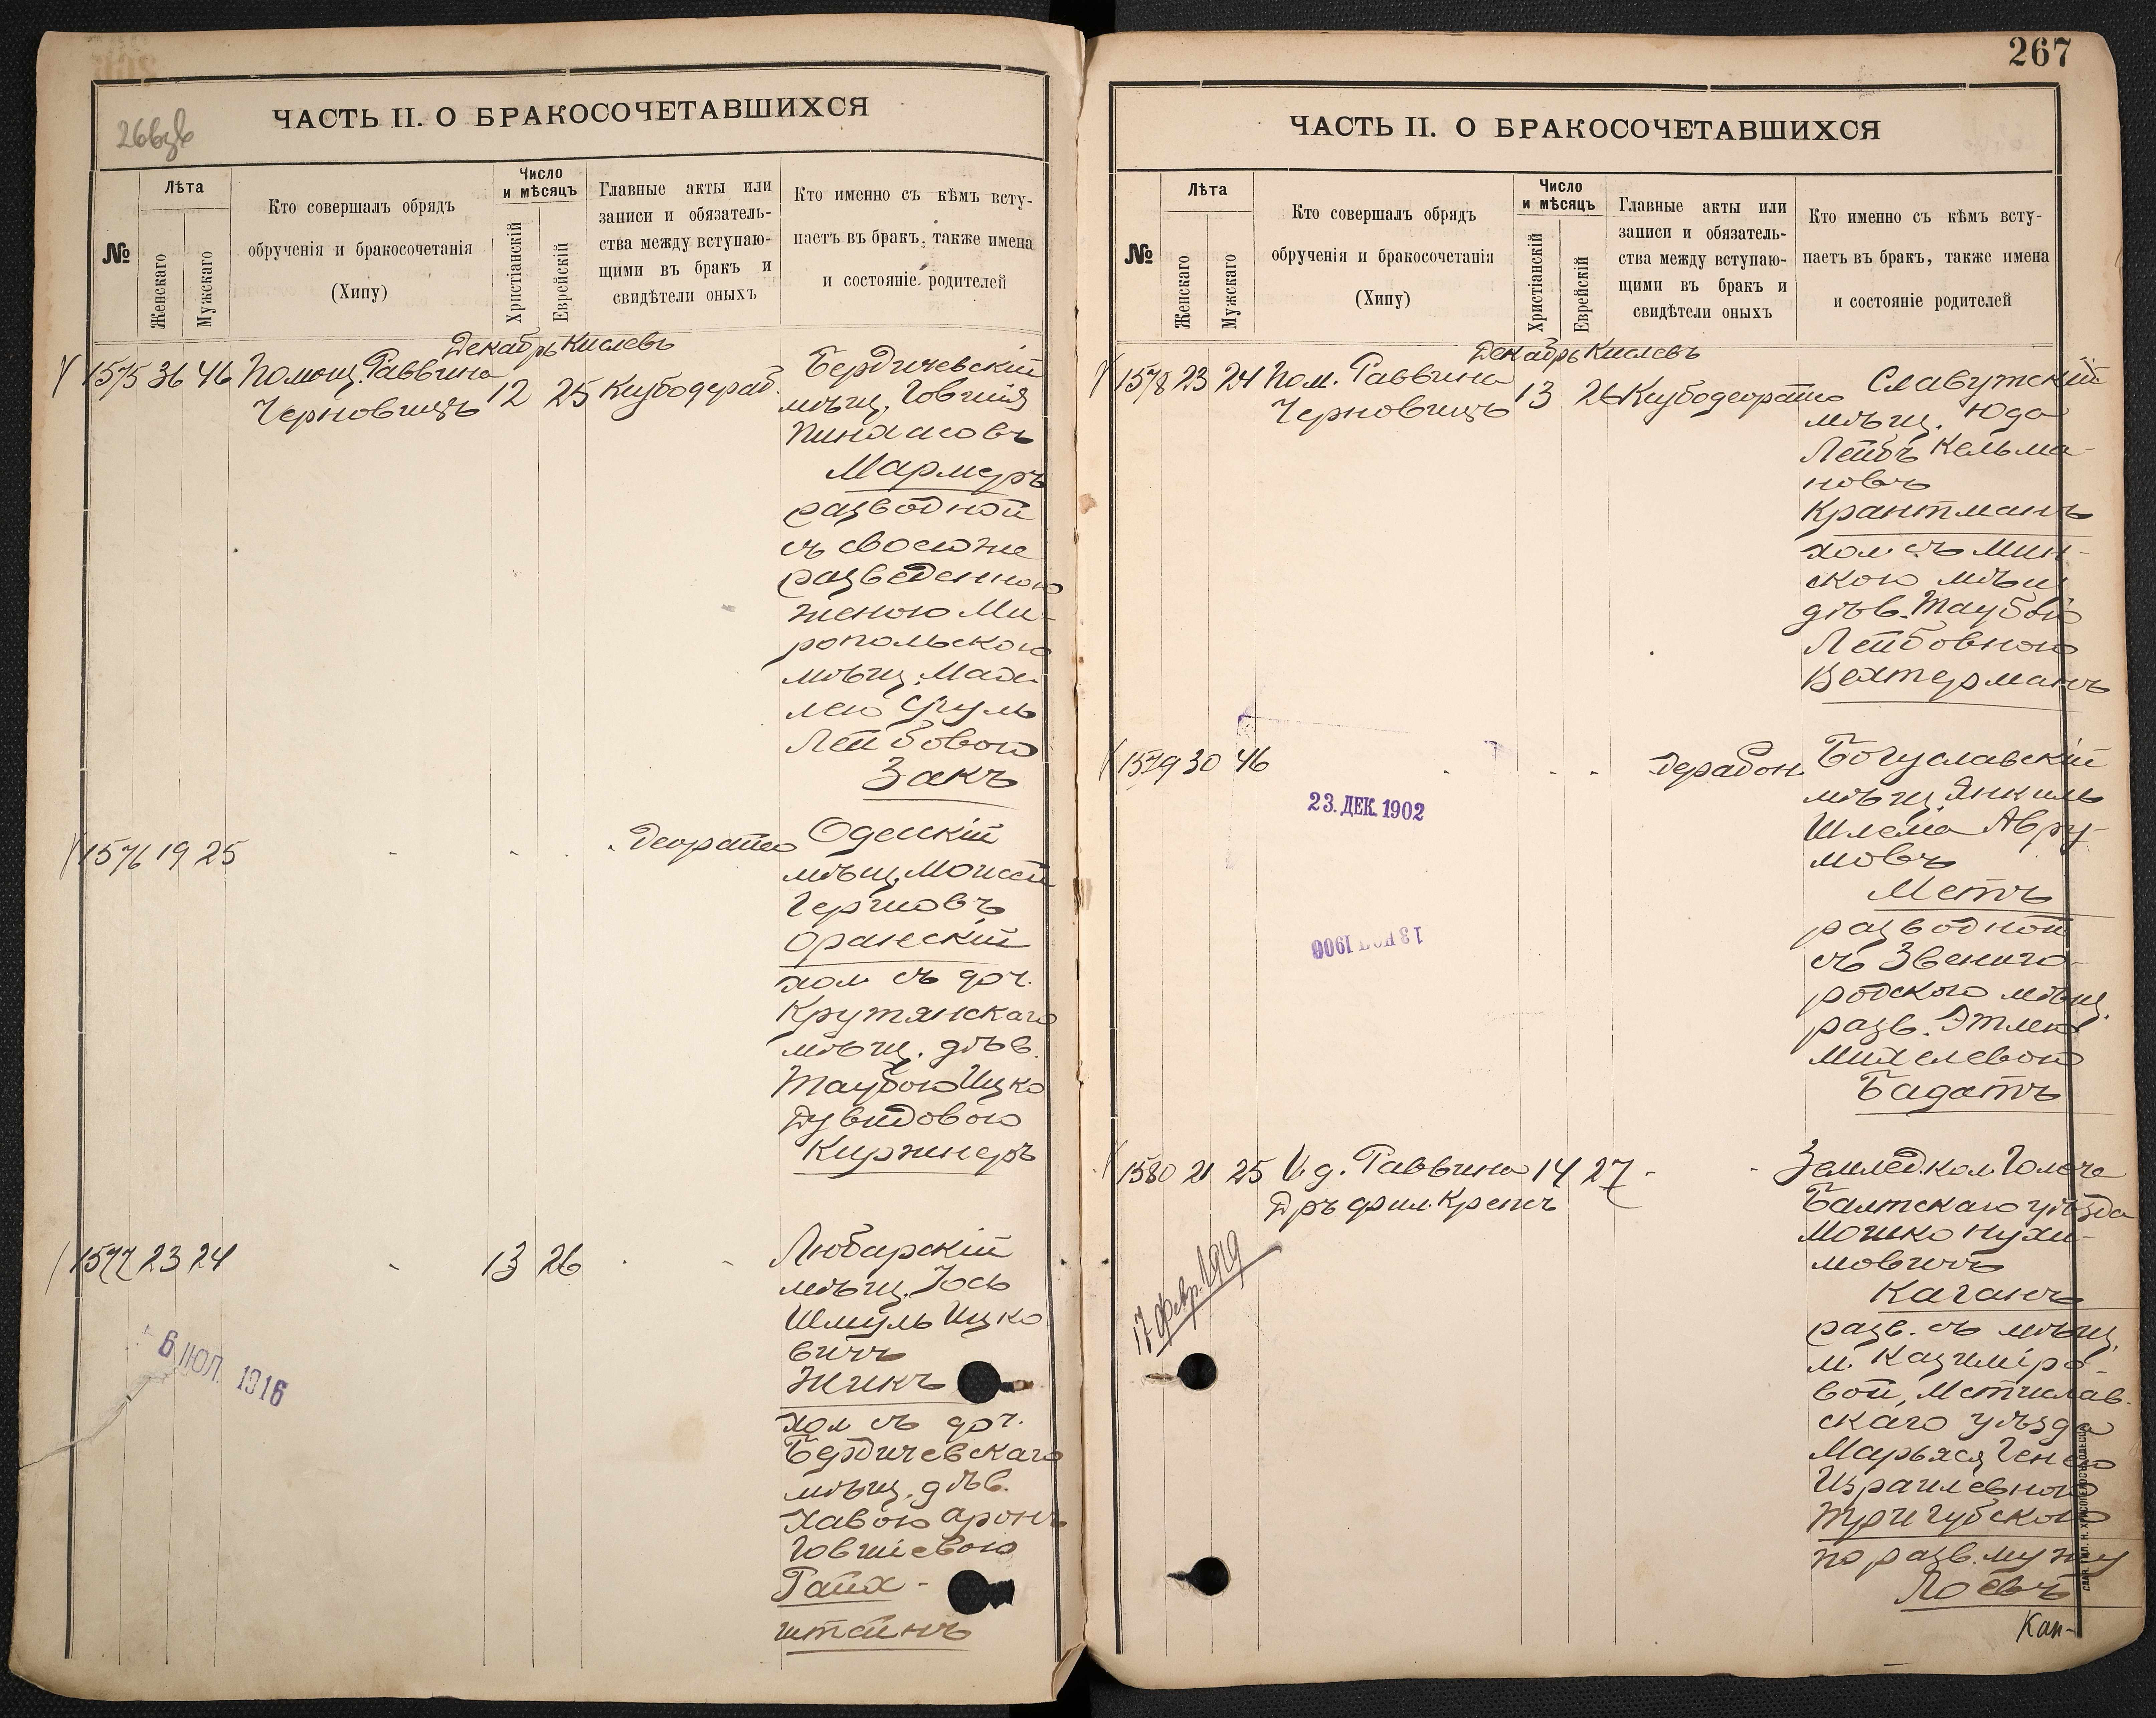 ЧАСТЬ II. О БРАКОСОЧЕТАВШИХСЯ
№
Лѣта
Женскаго
Мужскаго
Кто совершалъ обрядъ
обрученія и бракосочетанія
(Хипу)
Число
и мѣсяцъ
Христіанскій
Еврейскій
Главные акты или
записи и обязатель-
ства между вступаю-
щими въ бракъ и
свидѣтели оныхъ
Кто именно съ кѣмъ всту-
паетъ въ бракъ, также имена
и состояніе родителей
Декабрь Кислевъ
1575 36 46 Помощ. Раввина
Черновицъ
12 25
Бердичевскій
мѣщ. Говшія
Пинхасовъ
Мармеръ
разводной
съ своею же
разведенною
женою Ми-
ропольскою
мѣщ.
Лейбовою
Закъ
1576 19 25
Одесскій
мѣщ. Моисей
Гершовъ
Оранскій
хол. съ доч.
Крутянскаго
мѣщ. дѣв.
Таубою Ицко
Дувидовою
Киржнеръ
1577 23 24
13 26
Любарскій
мѣщ. Іось
Шмуль Ицко
вичъ
Жикъ
хол съ доч.
Бердичевскаго
мѣщ. дѣв.
Хавою Аронъ
Говшіевою
Райх-
штейнъ
6 ІЮЛ. 1916
267
ЧАСТЬ II. О БРАКОСОЧЕТАВШИХСЯ
№
Лѣта
Женскаго
Мужскаго
Кто совершалъ обрядъ
обрученія и бракосочетанія
(Хипу)
Число
и мѣсяцъ
Христіанскій
Еврейскій
Главные акты или
записи и обязатель-
ства между вступаю-
щими въ бракъ и
свидѣтели оныхъ
Кто именно съ кѣмъ всту-
паетъ въ бракъ, также имена
и состояніе родителей
Декабрь Кислевъ
1578 23 24 Пом. Раввина
Черновицъ
13 26
Славутскій
мѣщ. Юда
Лейбъ Кельма-
новъ
Крантманъ
хол. съ Мин-
скою мѣщ
дѣв. Таубою
Лейбовною
Вехтерманъ
1579 30 46
Богуславскій
мѣщ. Янкель
Шлема Авру-
мовъ
Метъ
разводной
съ Звениго-
родскою мѣщ.
разв. Этлею
Михелевою
Багатъ
23. ДЕК. 1902
1580 21 25 И. д. Раввина 14 27
Дръ фил. Крепсъ
Землед. кол.
Балтскаго уѣзда
Мошко Нухи-
мовичъ
Каганъ
разв. съ мѣщ.
м. Казиміро-
вой, Мстислав.
скаго уѣзда
Марьяся Генею
Израилевною
Тригубскою
по разв. мужу
Лоевъ
17 Февр. 1919
Кан-